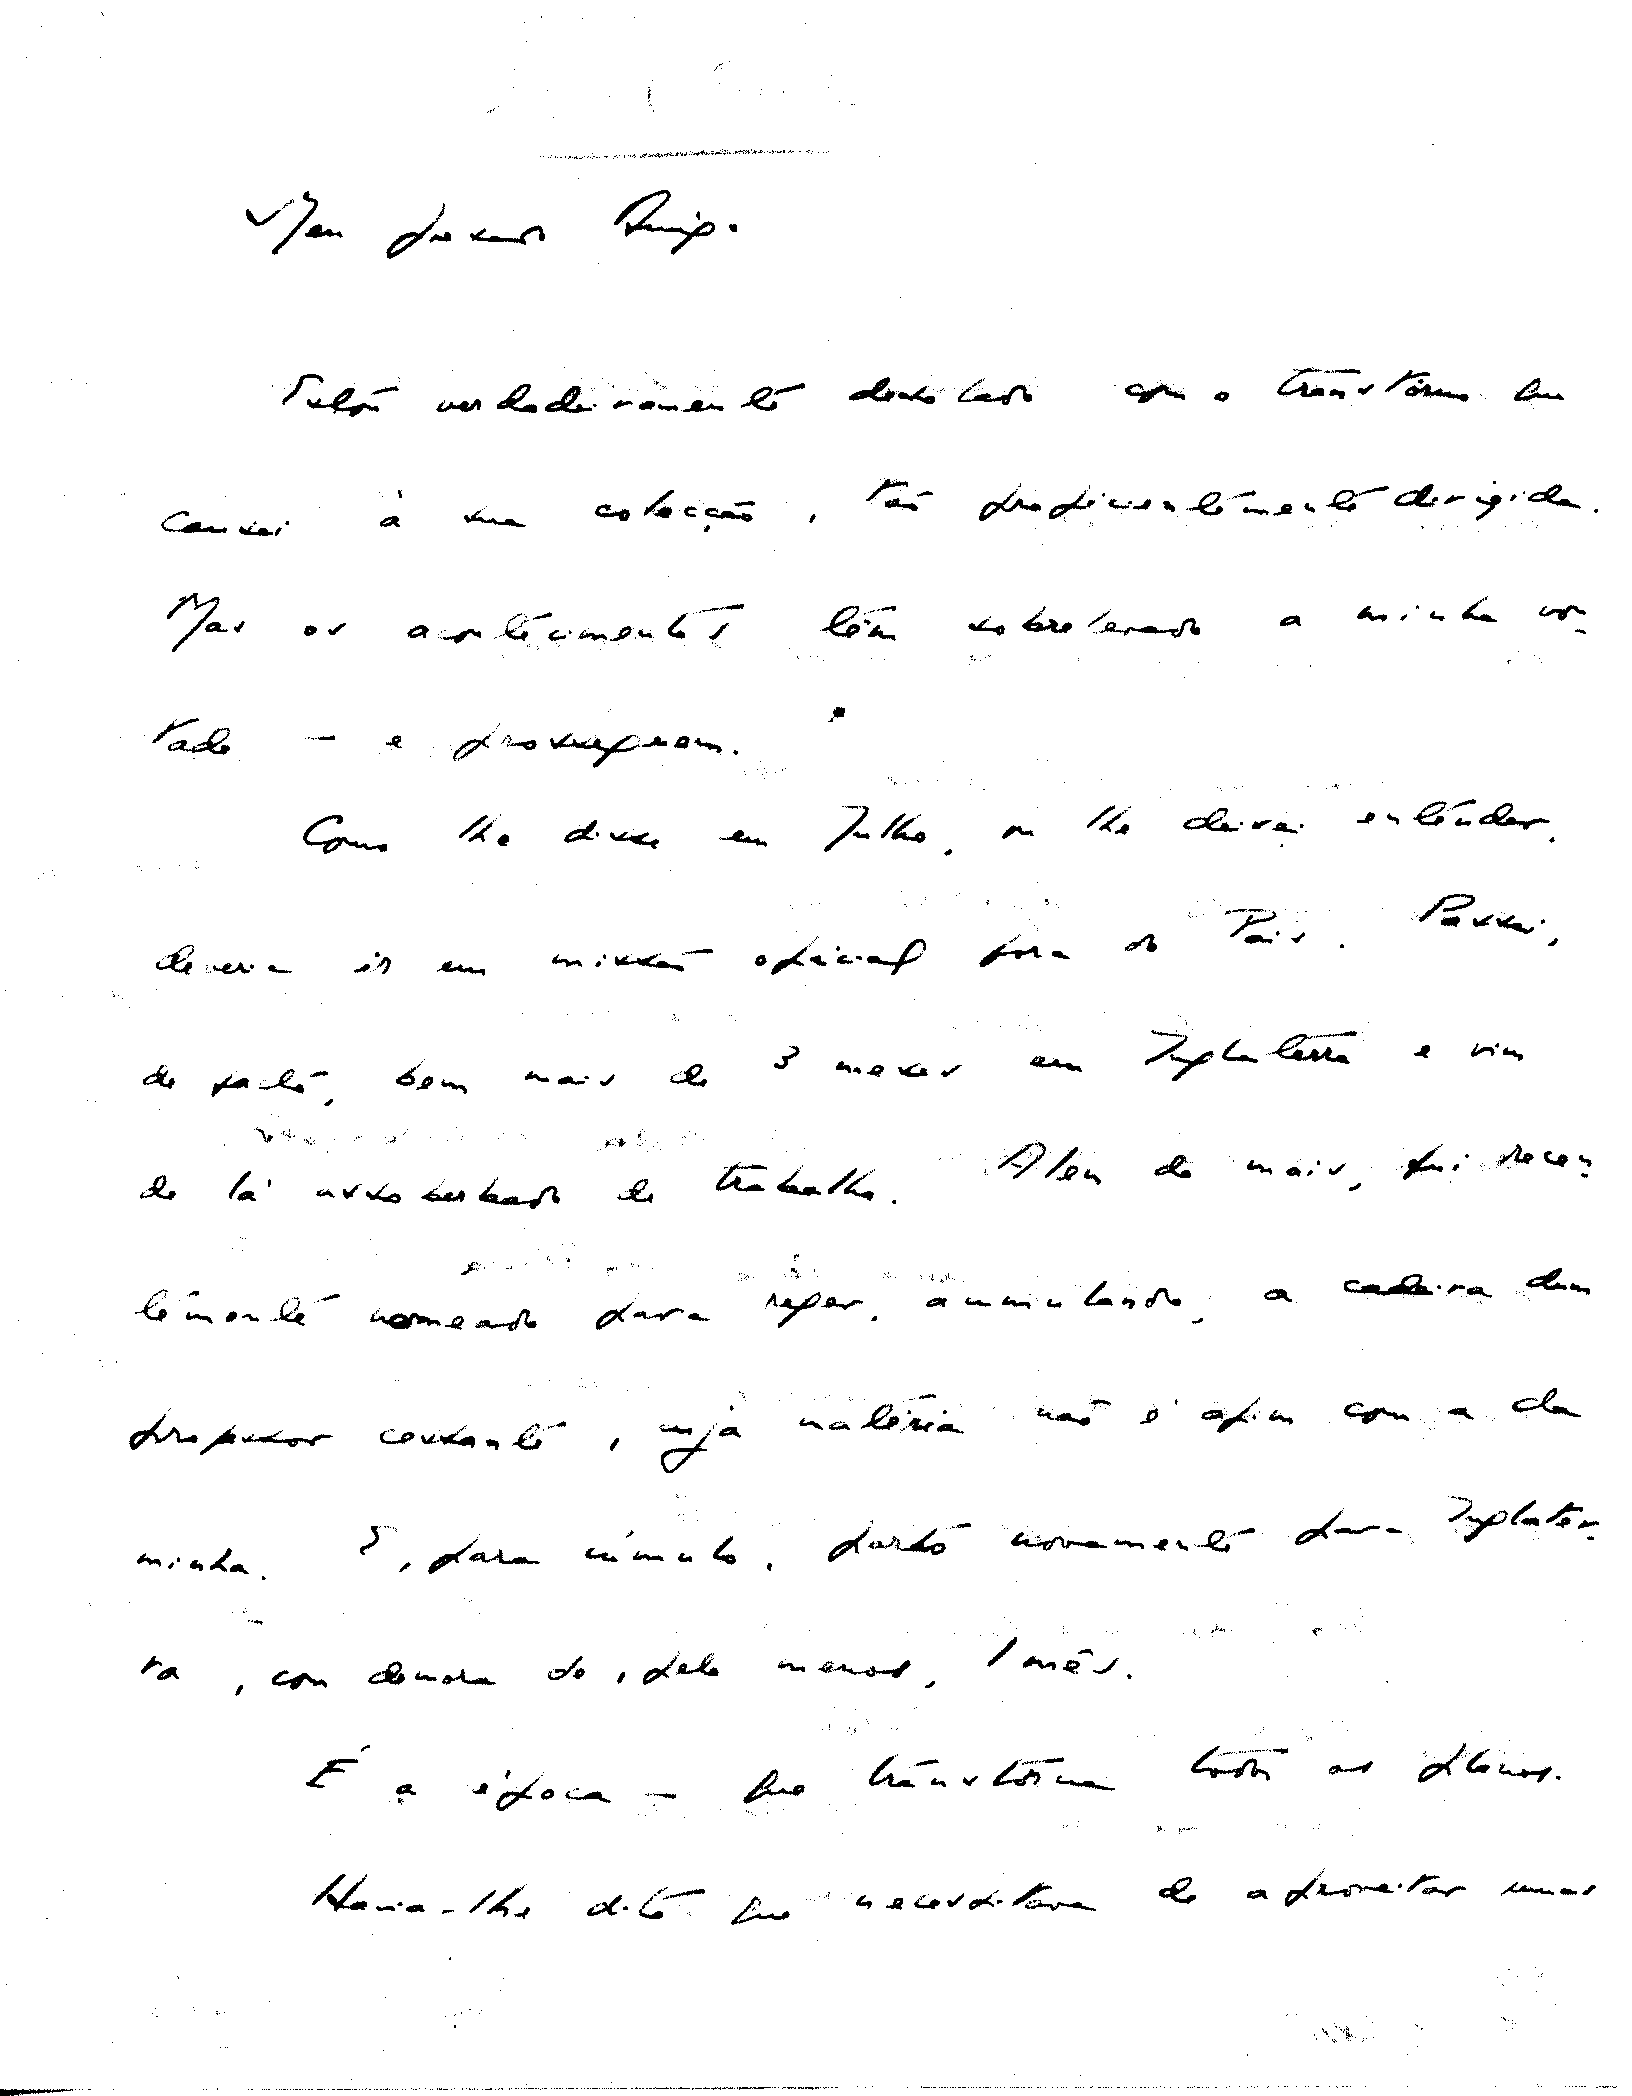 Meu prezado Amigo.
Estou verdadeiramente desolado com o transtôrno que
causei à sua colecção, tão proficientemente dirigida.
Mas os acontecimentos têm sobrelevado a minha von-
tade — e prosseguem.
Como lhe disse em Julho, ou lhe deixei entender,
deveria ir em missão oficial fora do País. Passei,
de facto, bem mais de 3 meses em Inglaterra e vim
de lá assoberbado de trabalho. Alem do mais, fui recen-
temente nomeado para reger, acumulando, a cadeira dum
professor cessante, cuja matéria não é afim com a da
minha. E, para cúmulo, parto novamente para Inglater-
ra, com demora de, pelo menos, 1 mês.
É a época — que transtorna todos os planos.
Havia-lhe dito que necessitava de aproveitar umas